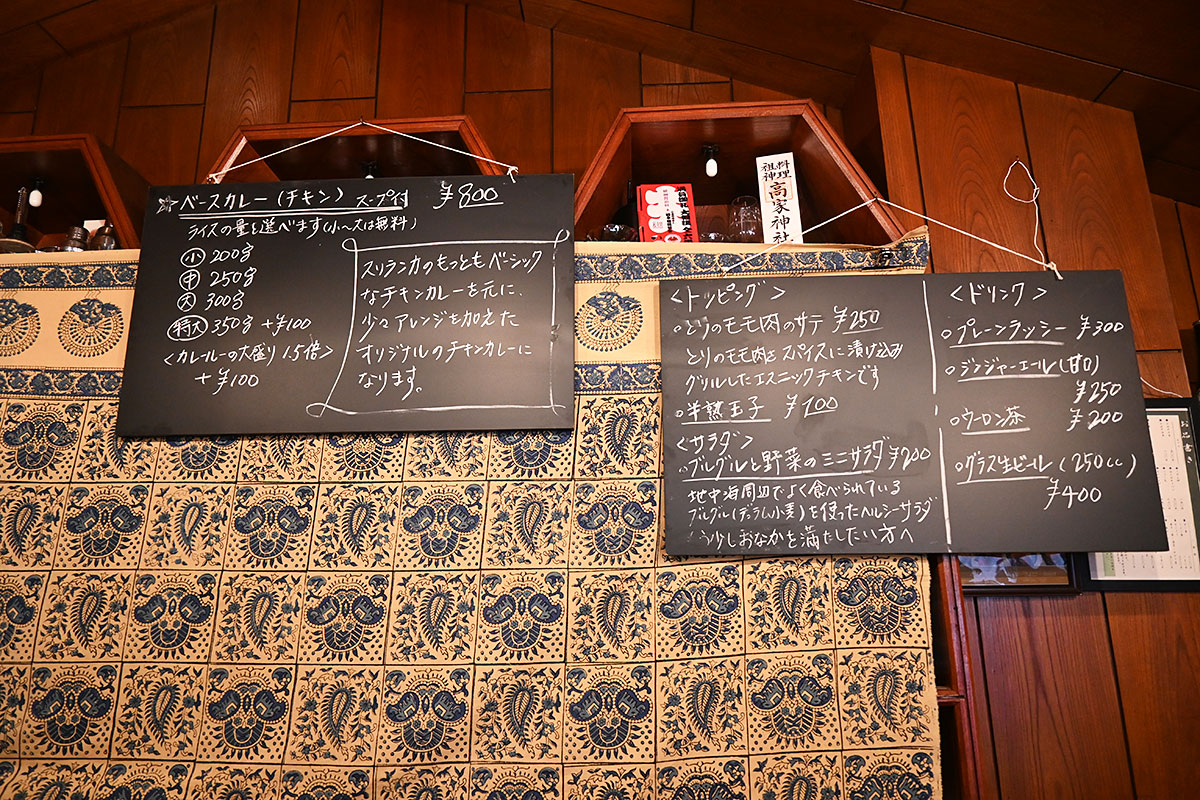 ☆ベースカレー(チキン) スープ付 ¥800
ライスの量を選べます(小〜大は無料)
小 200g
中 250g
大 300g
特大 350g +¥100
<カレールーの大盛り 1.5倍>
+¥100
スリランカのもっともベーシック
なチキンカレーを元に、
少々アレンジを加えた
オリジナルのチキンカレーに
なります。
料理
祖神
高家神社
<トッピング>
○とりのモモ肉のサテ ¥250
とりのモモ肉をスパイスに漬け込み
グリルしたエスニックチキンです
○半熟玉子 ¥100
<サラダ>
○ブルグルと野菜のミニサラダ ¥200
地中海周辺でよく食べられている
ブルグル(デュラム小麦)を使ったヘルシーサラダ
もう少しおなかを満たしたい方へ
<ドリンク>
○プレーンラッシー ¥300
○ジンジャーエール(甘口)
¥250
○ウーロン茶 ¥200
○グラス生ビール(250cc)
¥400
お品書き